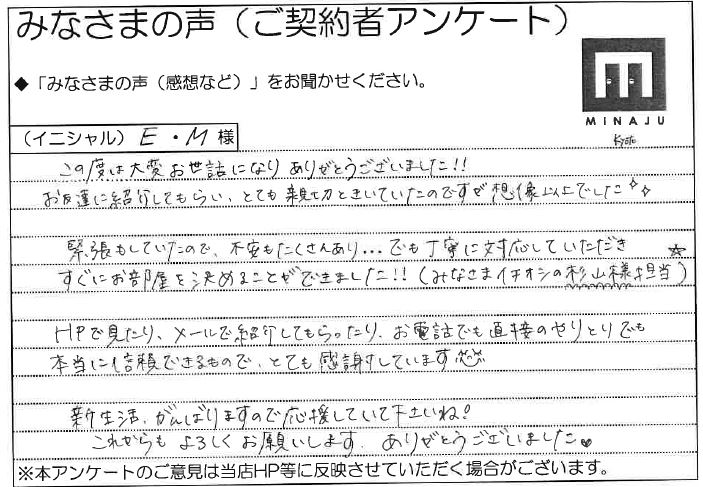 みなさまの声（ご契約者アンケート）
◆「みなさまの声（感想など）」をお聞かせください。
MINAJU
Kyoto
（イニシャル）E・M様
この度は大変お世話になりありがとうございました!!
お友達に紹介してもらい、とても親切ときいていたのですが想像以上でした
緊張もしていたので、不安もたくさんあり...でも丁寧に対応していただき
すぐにお部屋を決めることができました!!（みなさまイチオシの杉山様担当☆）
HPで見たり、メールで紹介してもらったり、お電話でも直接のやりとりでも
本当に信頼できるもので、とても感謝しています
新生活、がんばりますので応援していて下さいね!
これからもよろしくお願いします。ありがとうございました♥
※本アンケートのご意見は当店HP等に反映させていただく場合がございます。